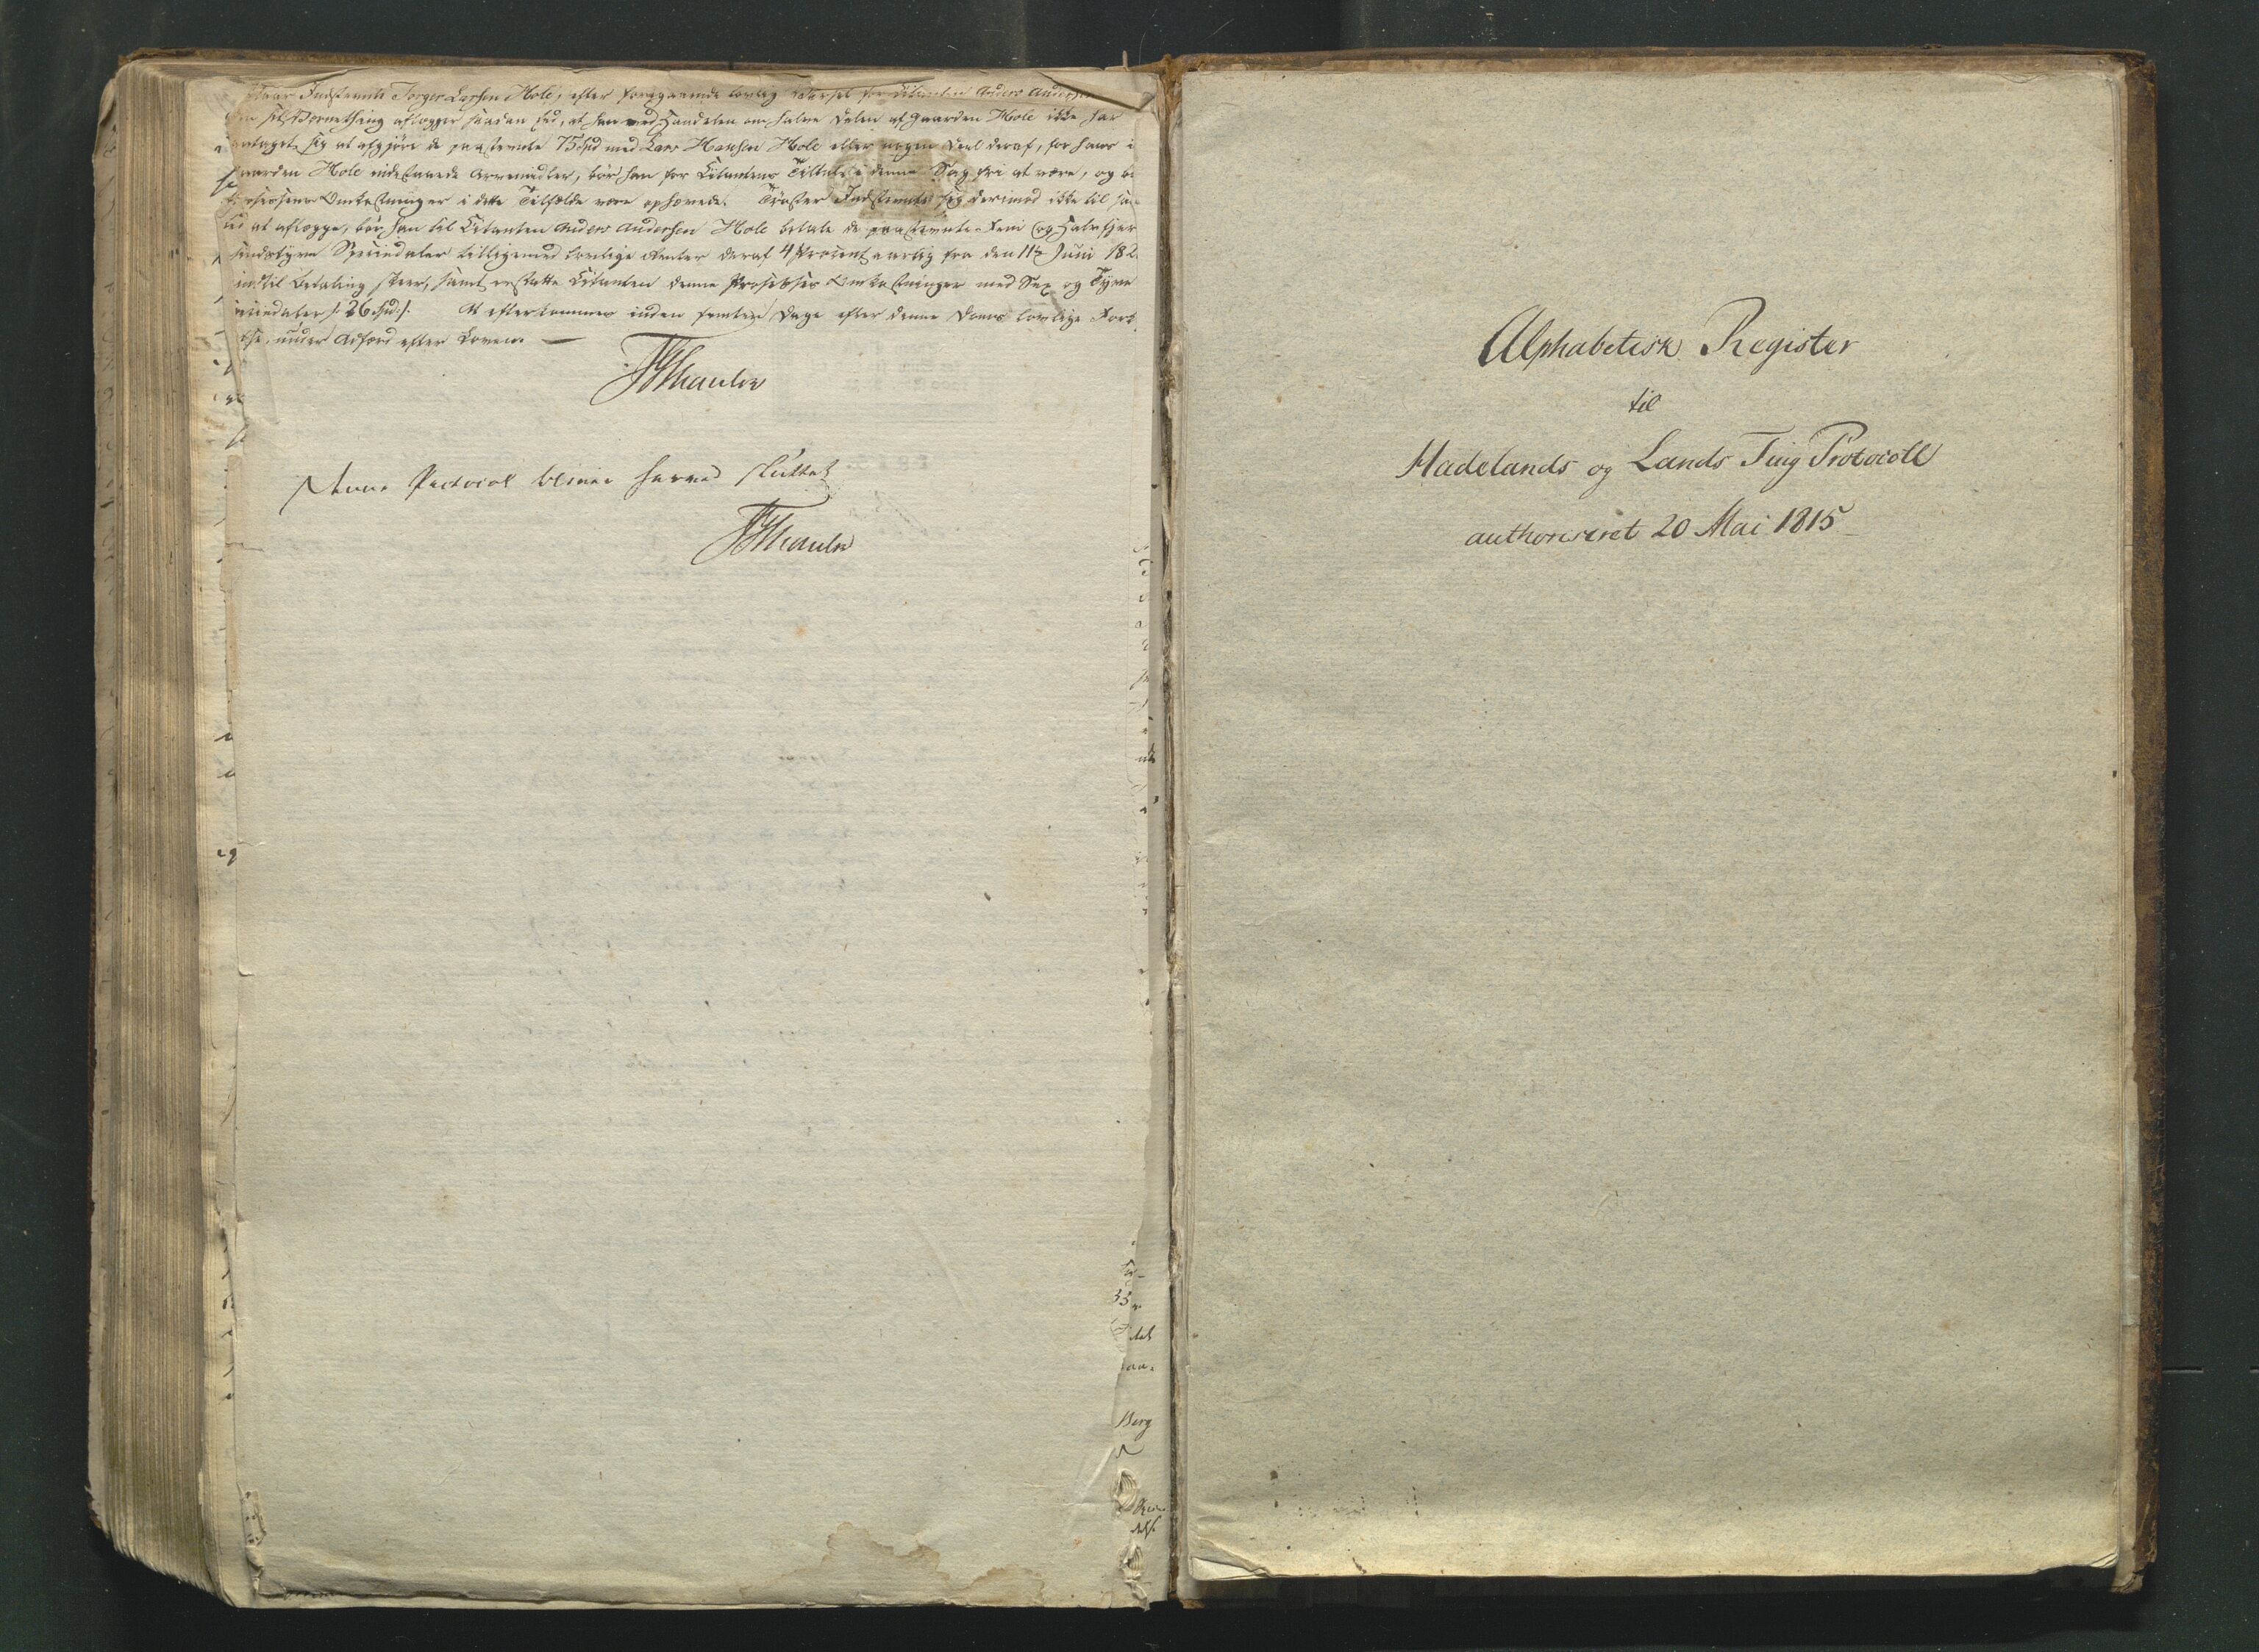 Indstevnte Torger Larsen Hole, efter foregaaende lovlig Varsel for Citanten Anders Andersen
Hjemthing aflægger saadan Eed, at han ved Handelen om halve Delen af Gaarden Hole ikke har
paataget sig at afgjøre de paastevnte 75 Spd med Lars Hansen Hole eller nogen Deel deraf, for hans i
Gaarden Hole indestaaende Arvemidler, bør han for Citantens Tiltale i denne Sag fri at være, og
Processens Omkostninger i dette Tilfælde være ophævede. Trøster Indstevnte sig derimod ikke til
Eed at aflægge, bør han til Citanten Anders Andersen Hole betale de paastevnte Fem og Halvfjer
sindstyve Speciedaler tilligemed lovlige Renter deraf 4 Procent aarlig fra den 11te Juni 182
indtil Betaling skeer, samt erstatte Citanten denne Processes Omkostninger med Sex og Tyve
Speciedaler /: 26 Spd :/. At efterkommes inden femten Dage efter denne Doms lovlige Fork
else, under Adfærd efter Loven. —
Denne Protocol bliver herved sluttet
Alphabetisk Register
til
Hadelands og Lands Ting Protocoll
authoriseret 20 Mai 1815
Berg